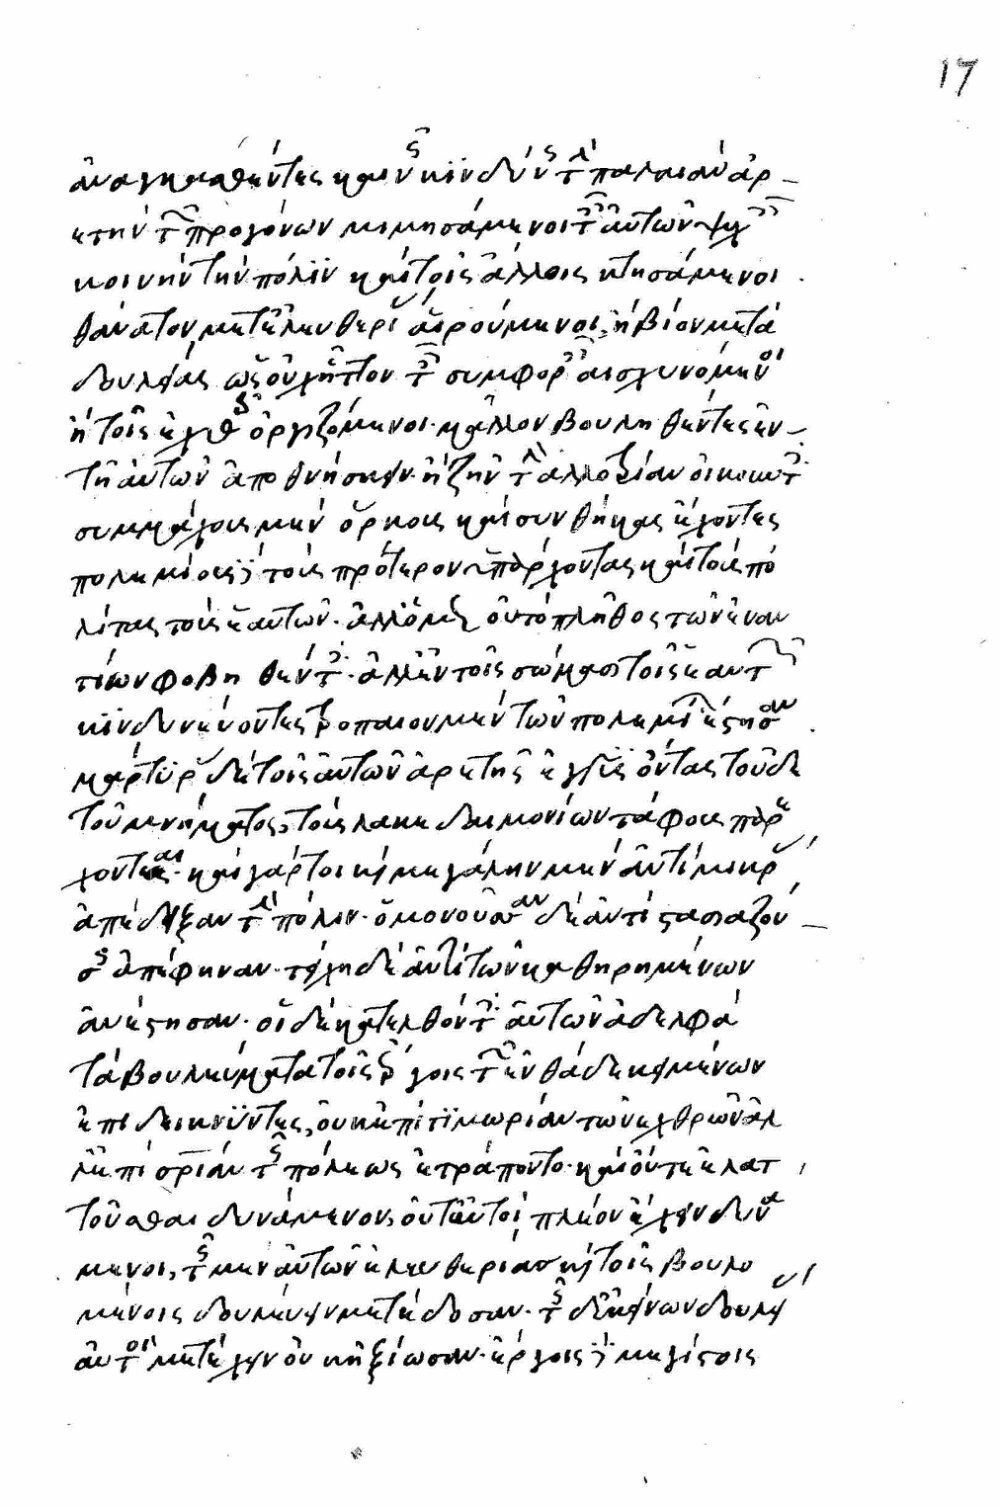 ἀναγκασθέντες καὶ τοὺς κινδύνους τὴν παλαιὰν ἀρ-
ετὴν τῶν προγόνων μιμησάμενοι ταῖς αὐτῶν ψυχαῖς
κοινὴν τὴν πόλϊν καὶ τοῖς ἄλλοις κτησάμενοι
θάνατον μετ' ἐλευθερίας αἱρούμενοι, ἢ βίον μετὰ
δουλείας ὡς οὐχ ἧττον ταῖς συμφοραῖς αἰσχυνόμενοι
ἢ τοῖς ἐχθροῖς ὀργιζόμενοι· μᾶλλον βουληθέντες ἐν
τῇ αὐτῶν ἀποθνήσκειν· ἢ ζῆν τὴν ἀλλοτρίαν οἰκοῦντες
συμμάχους μὲν ὅρκους καὶ συνθήκας ἔχοντες
πολεμίους δὲ τοὺς πρότερον ὑπάρχοντας καὶ τοὺς πο
λίτας τοὺς ἑαυτῶν· ἀλλ' ὅμως οὐ τὸ πλῆθος τῶν ἐναν
τίων φοβηθέντες· ἀλλ' ἐν τοῖς σώμασι τοῖς ἑαυτῶν
κϊνδυνεύοντες τρόπαιον μὲν τῶν πολεμίων ἔστησαν
μάρτυρας δὲ τοῖς αὐτῶν ἀρετῆς ἐγγὺς ὄντας τοῦδε
τοῦ μνήματος, τοὺς λακεδαιμονίων τάφους παρέ
χονται· καὶ γάρ τοι καὶ μεγάλην μὲν ἀντὶ μικρᾶς
ἀπέδειξαν τὴν πόλιν· ὁμονοοῦσαν δὲ ἀντὶ στασιαζού
σης ἀπέφηναν· τείχη δὲ ἀντὶ τῶν καθηρημένων
ἀνέστησαν· οἱ δὲ κατελθόντες αὐτῶν ἀδελφὰ
τὰ βουλεύματα τοῖς ἔργοις τῶν ἐνθάδε κειμένων
ἐπιδεικνύντες, οὐκ ἐπὶ τϊμωρίαν τῶν ἐχθρῶν ἀλ
λ' ἐπὶ σωτηρίαν τῆς πόλεως ἐτράποντο· καὶ οὔτε ἐλατ
τοῦσθαι δυνάμενον, οὔτ' αὐτοὶ πλέον ἔχειν δυνά
μενοι, τῆς μὲν αὐτῶν ἐλευθερίας καὶ τοῖς βουλο
μένοις δουλεύειν μετέδοσαν· τῆς δ' ἐκείνων δουλείας
αὐτοὶ μετέχειν οὐκ ἠξίωσαν· ἔργοις δὲ μεγίστοις